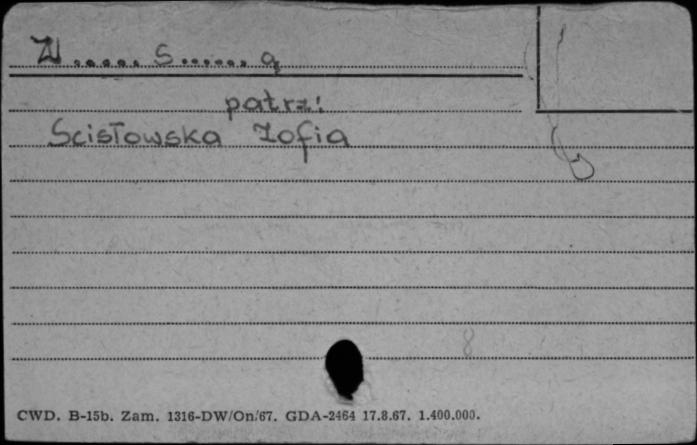 Z ..... S ...... a
patrz:
Ścisłowska Zofia
8
CWD. B-15b. Zam. 1316-DW/On/67. GDA-2464 17.8.67. 1.400.000.